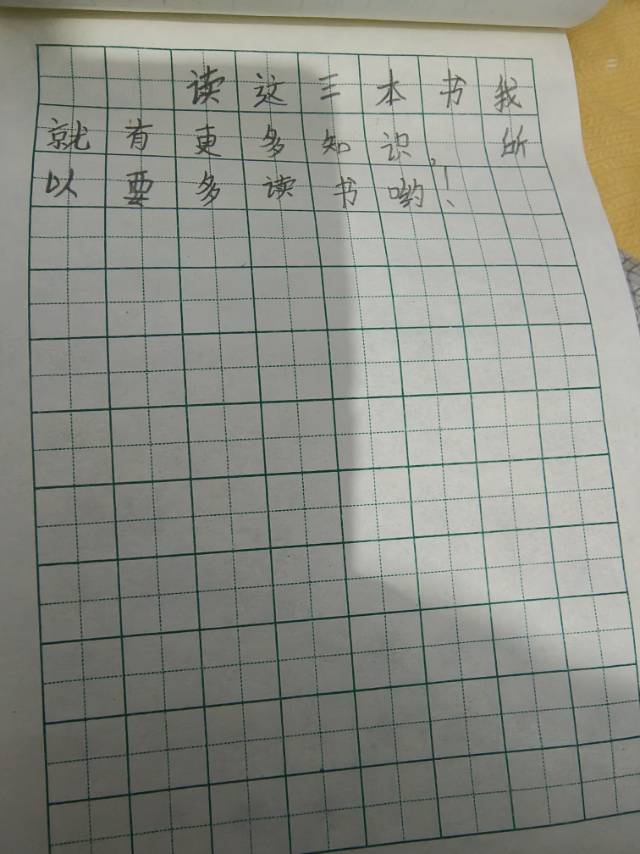 读这三本书我
就有更多知识，所
以要多读书哟！